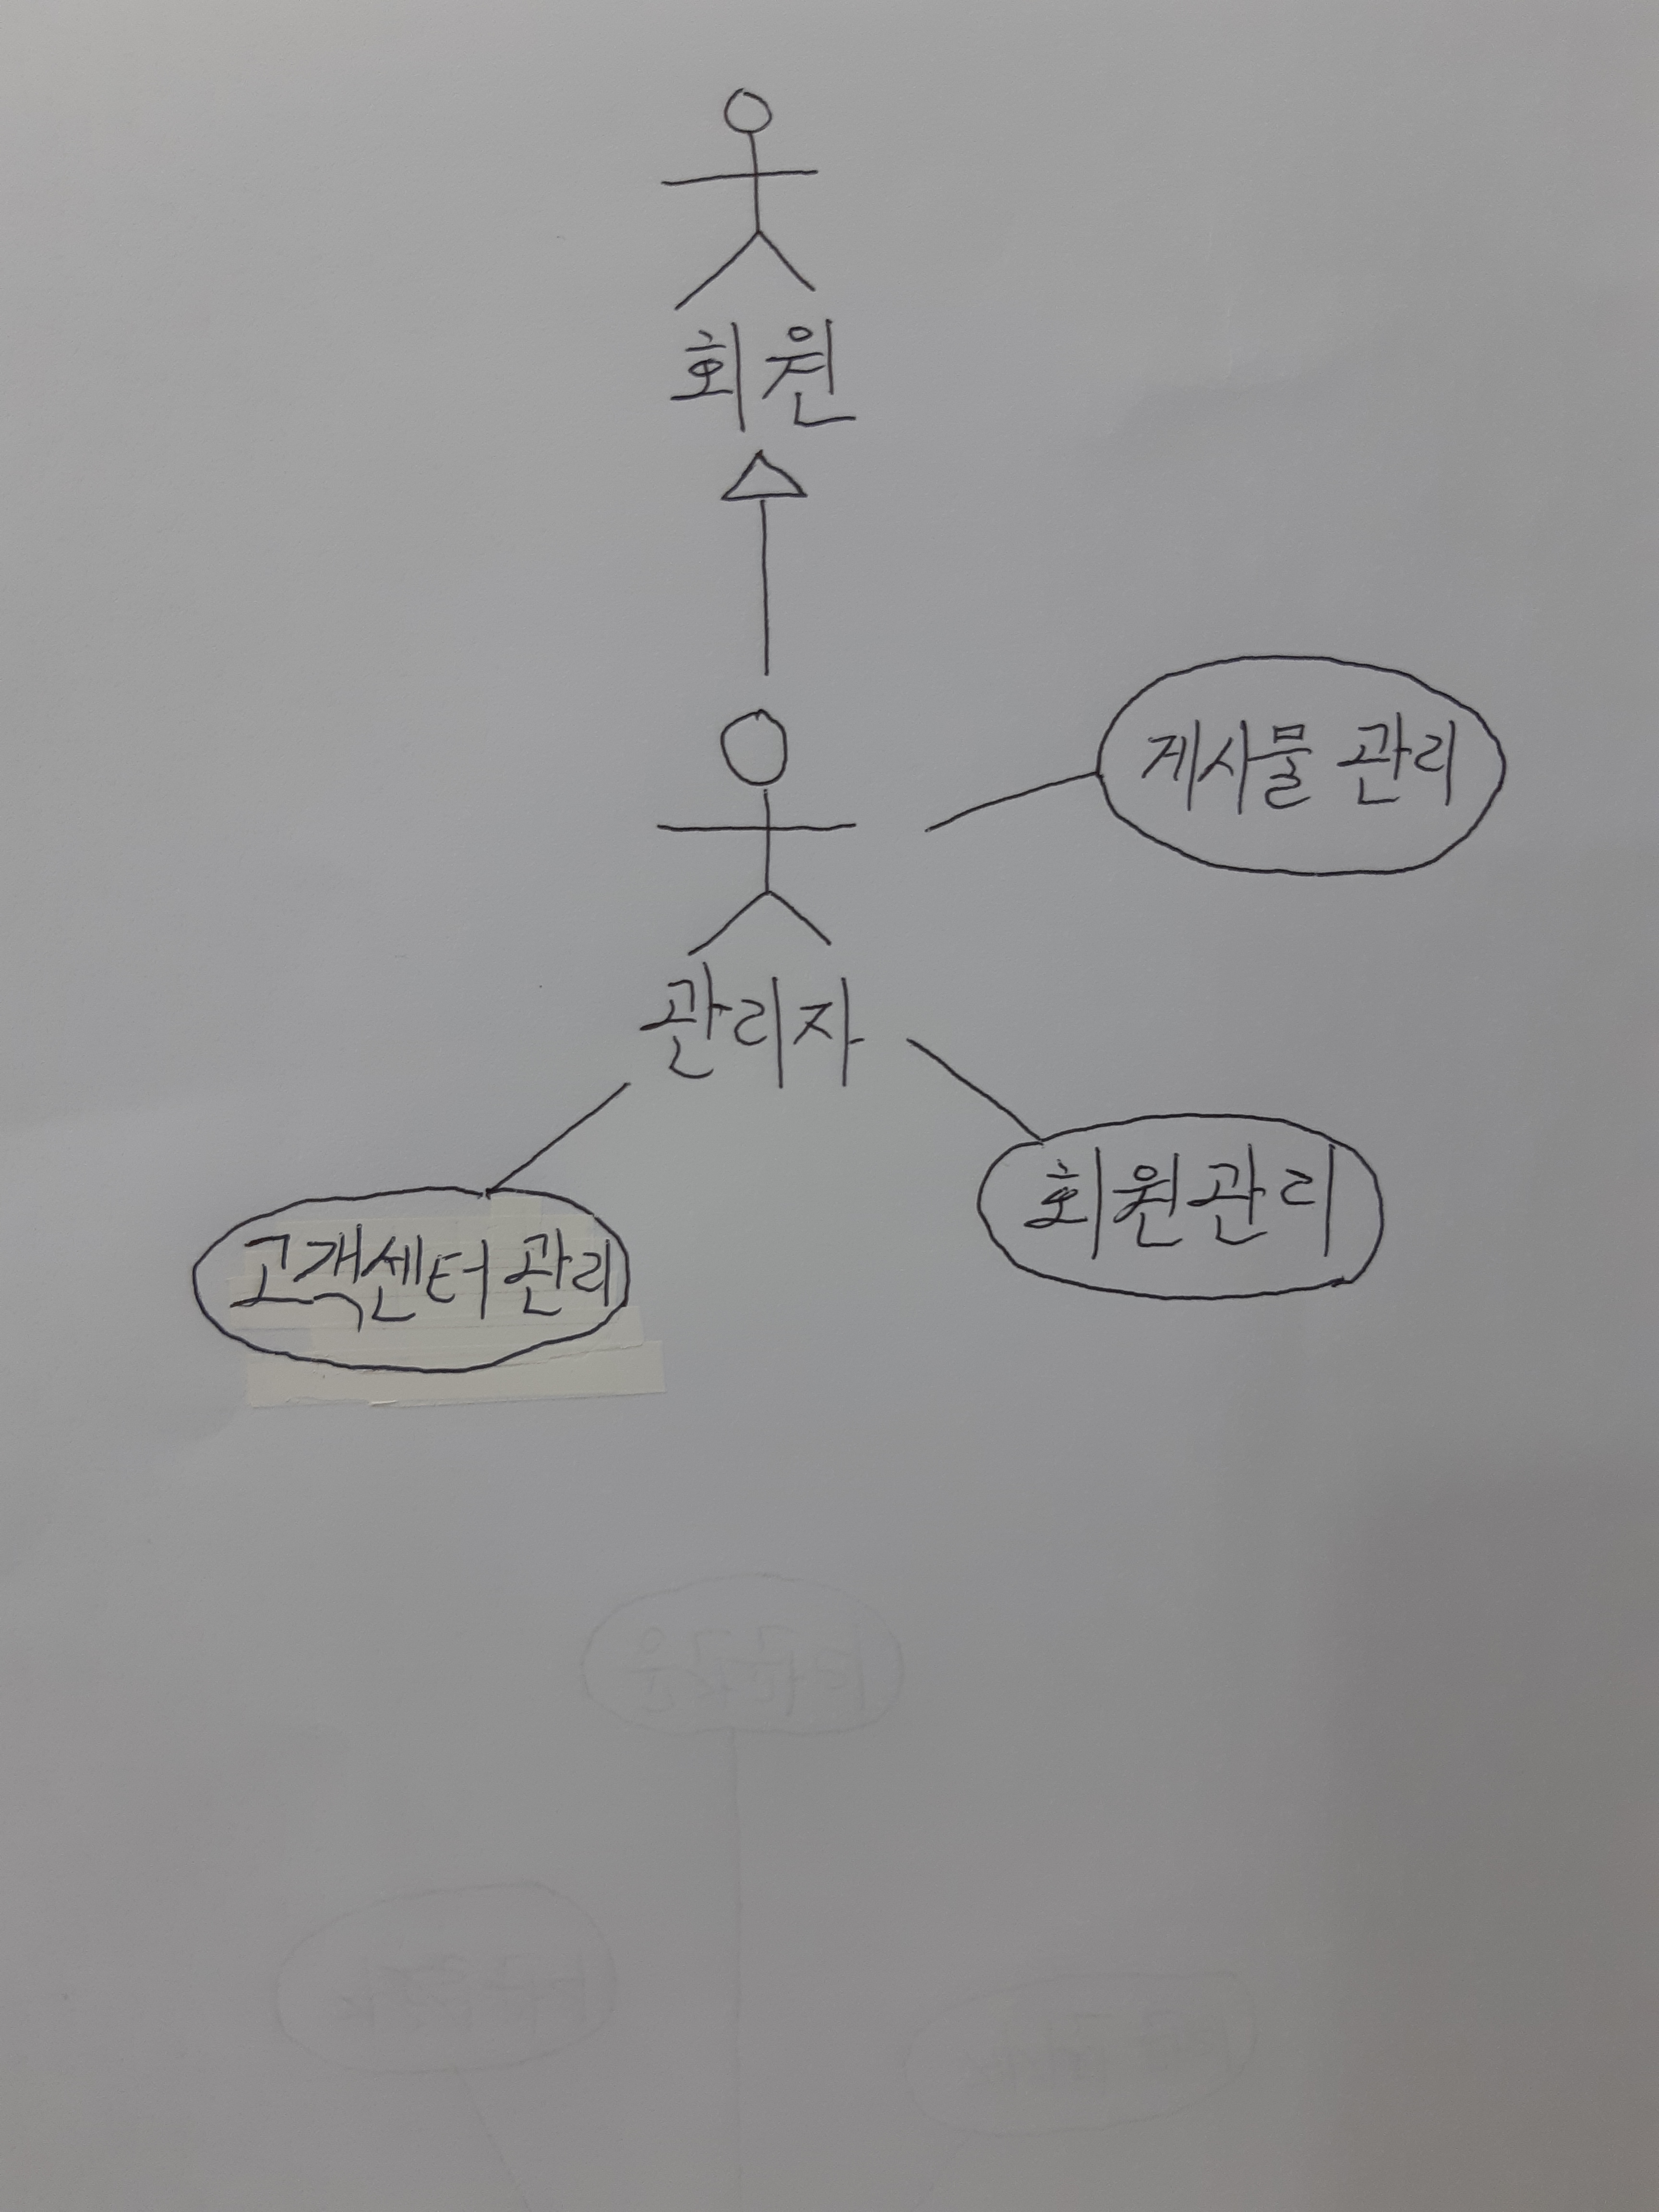 회원
게시물 관리
관리자
회원관리
고객센터 관리